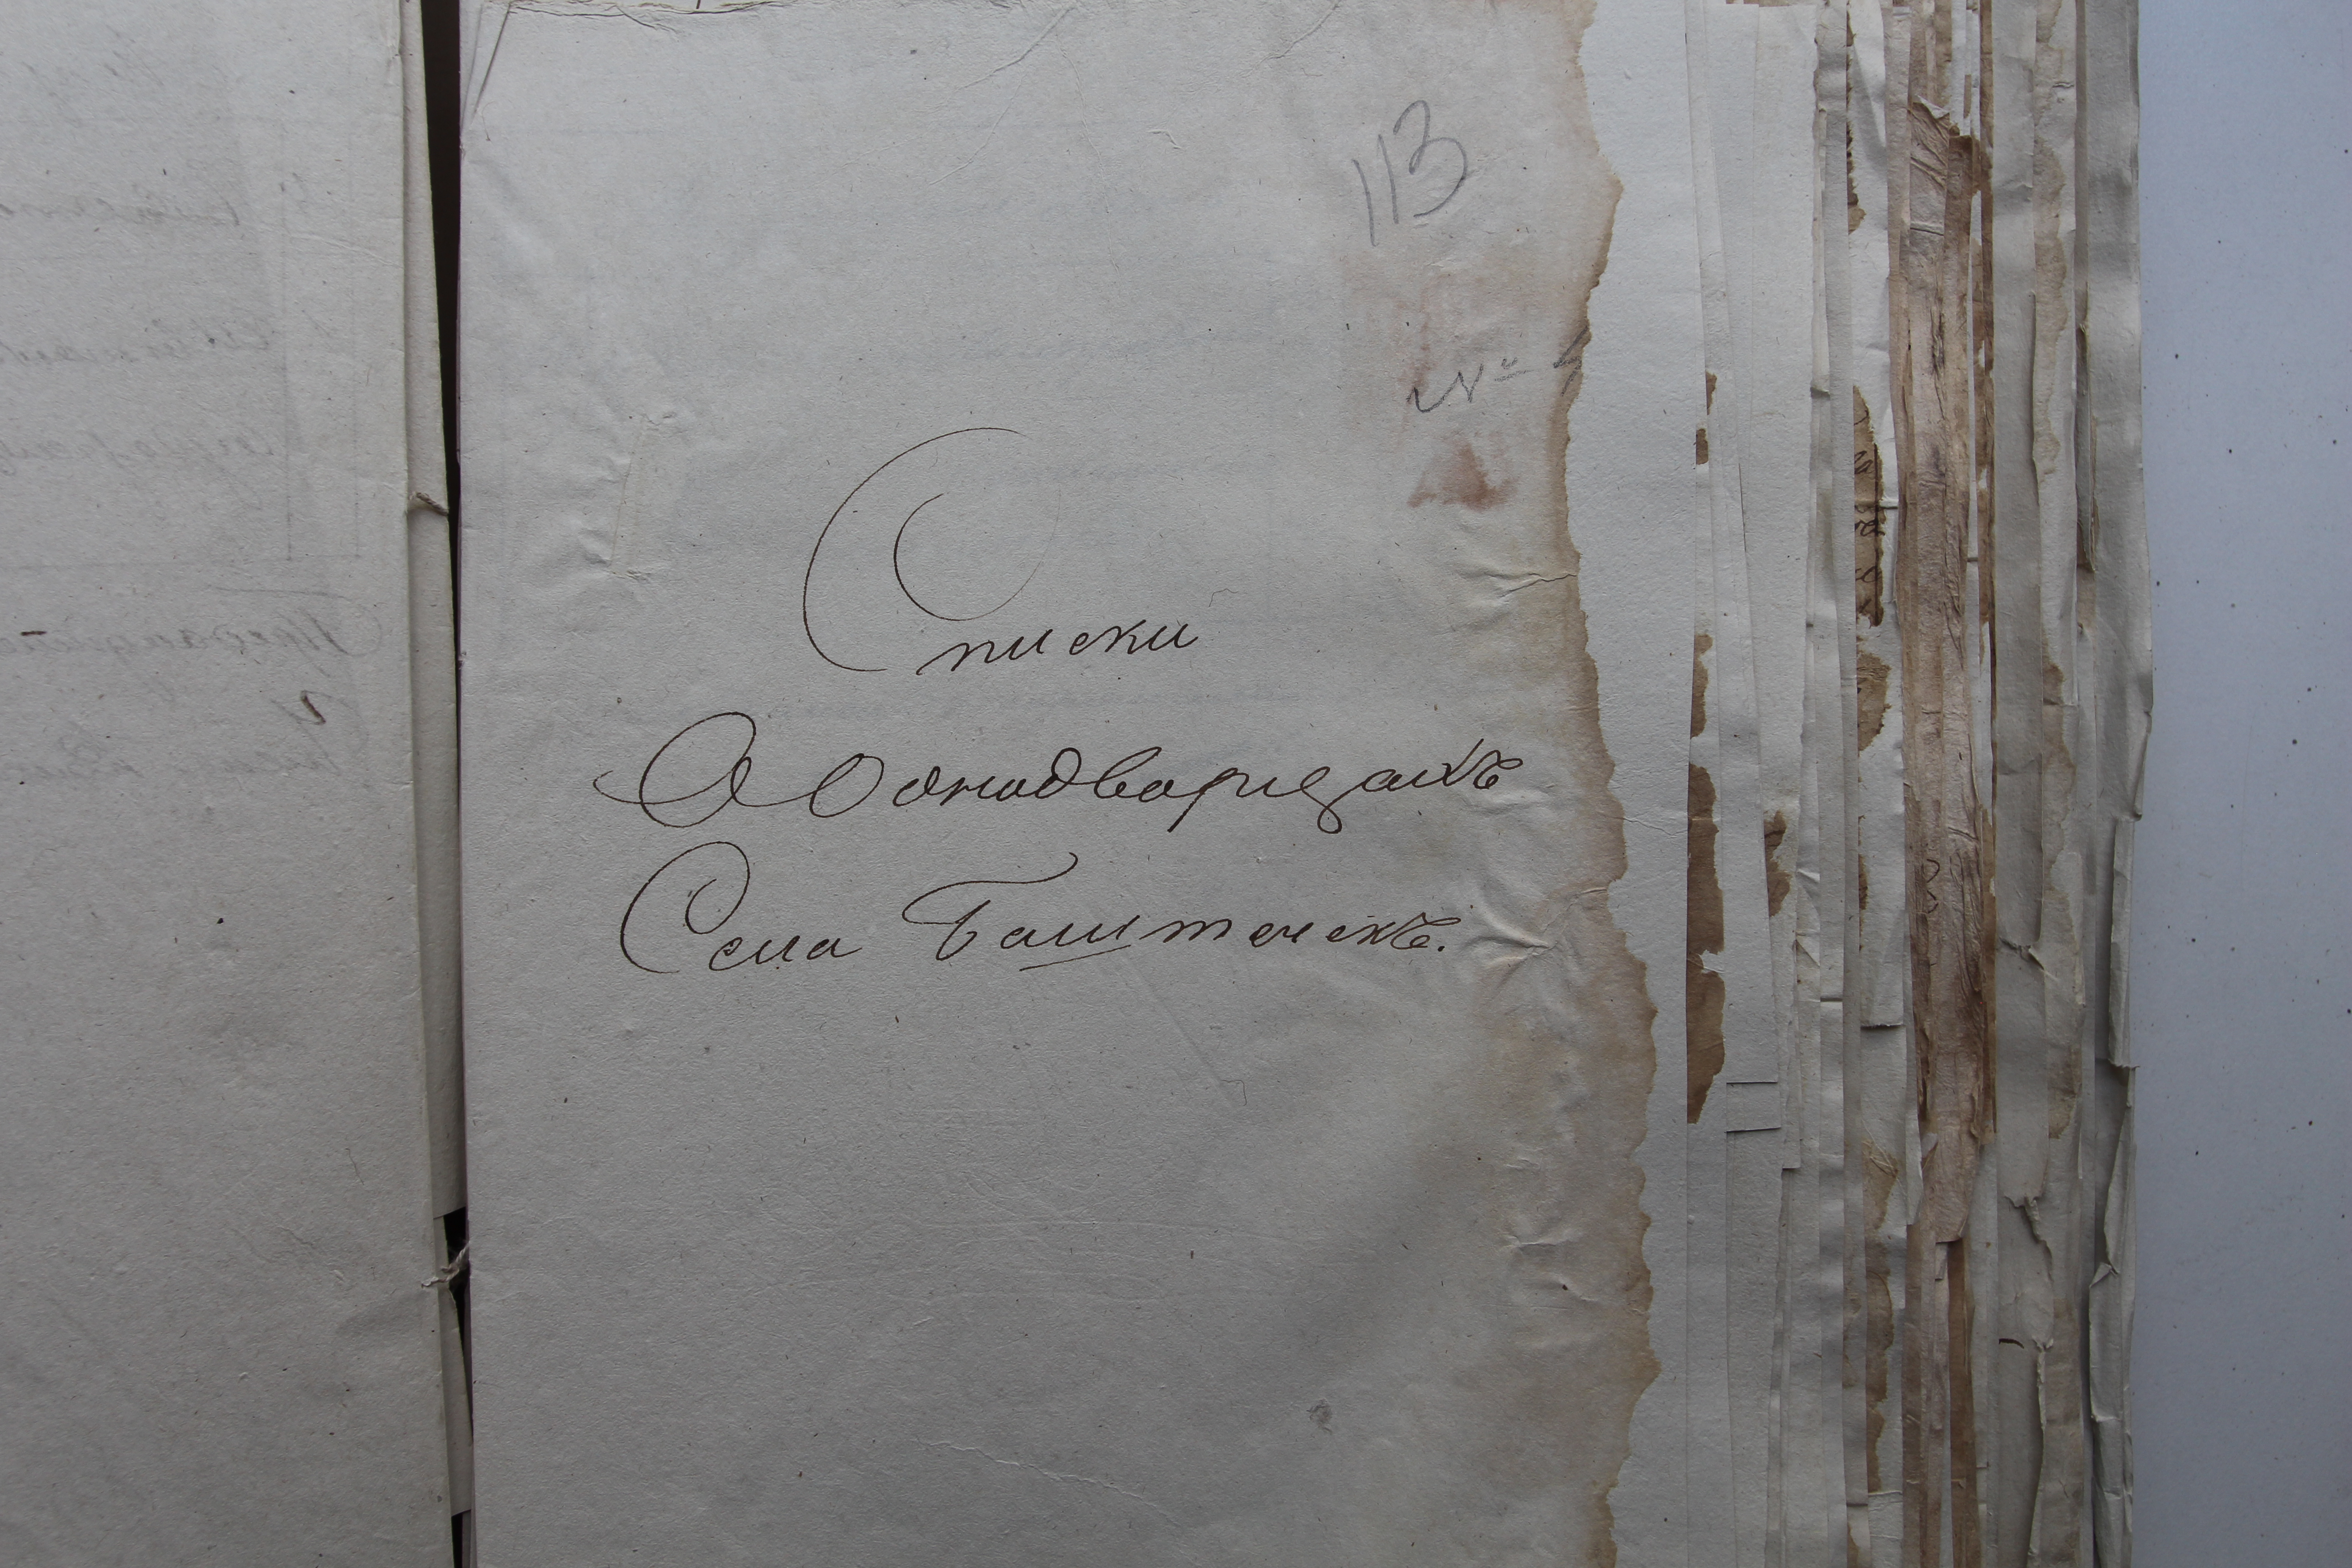 113
№
Списки
О Однодворцахъ
Села Баштечекъ.